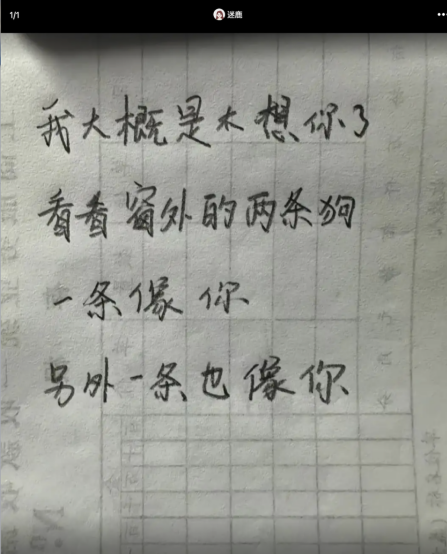 1/1
迷鹿
我大概是太想你了
看看窗外的两条狗
一条像你
另外一条也像你